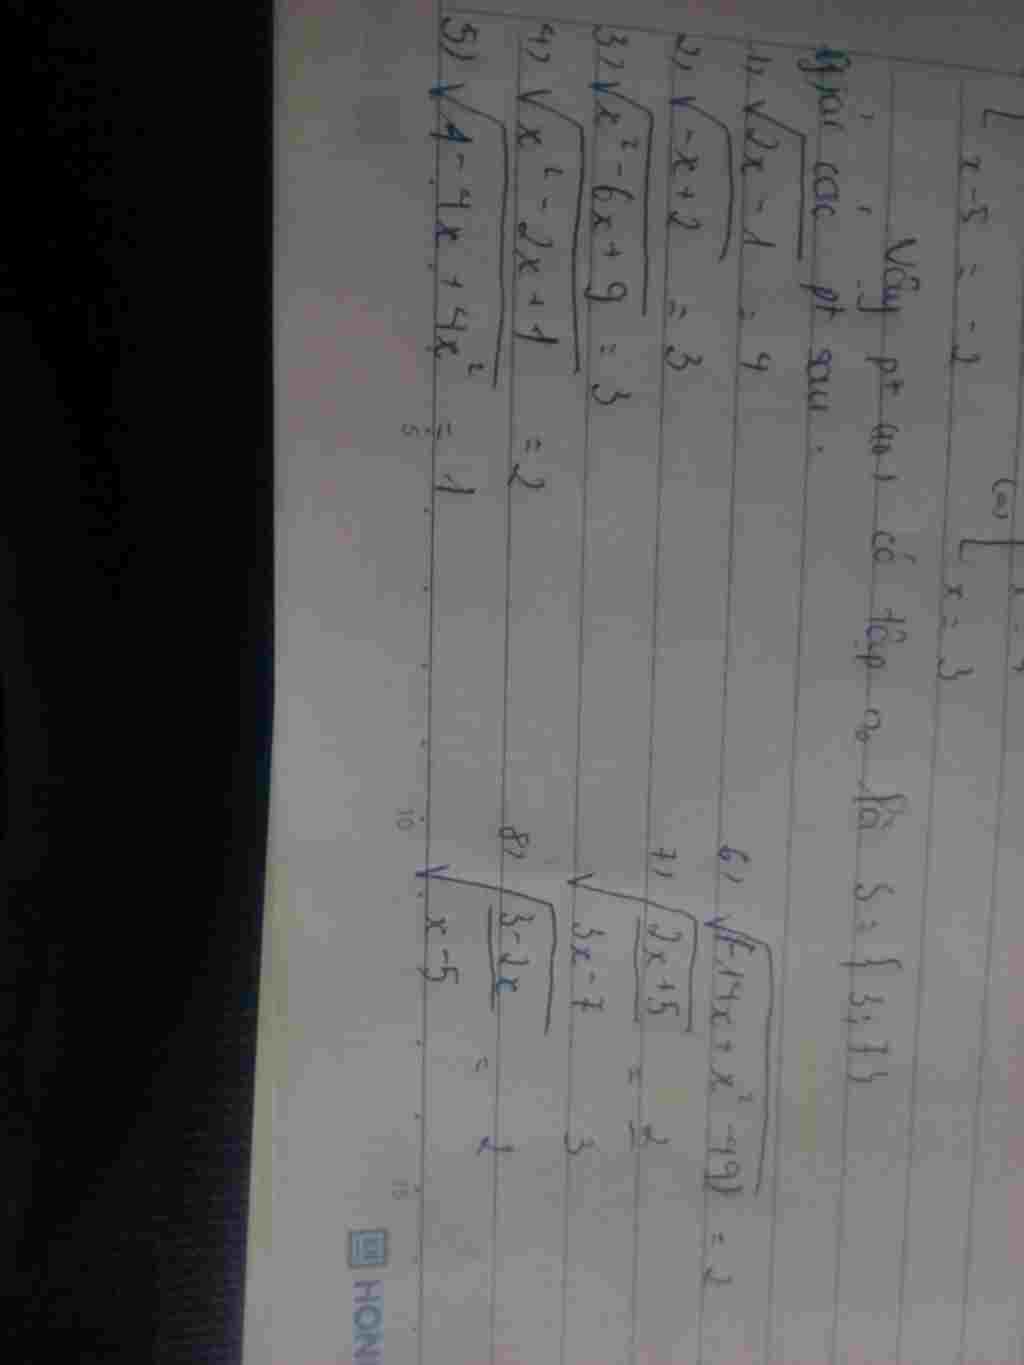 x-5 = -2
x = 3
Vậy pt có tập n₀ là S = { 3; 7 }
Giải các pt sau.
1) √2x - 1 = 4
2) √-x + 2 = 3
3) √x² - 6x + 9 = 3
4) √x² - 2x + 1 = 2
5) √1 - 4x + 4x² = 1
6) √(-14x + x² - 49) = 2
7) √2x + 5 / 3x - 7 = 2 / 3
8) √3 - 2x / x - 5 = 2
5
10
15
HON